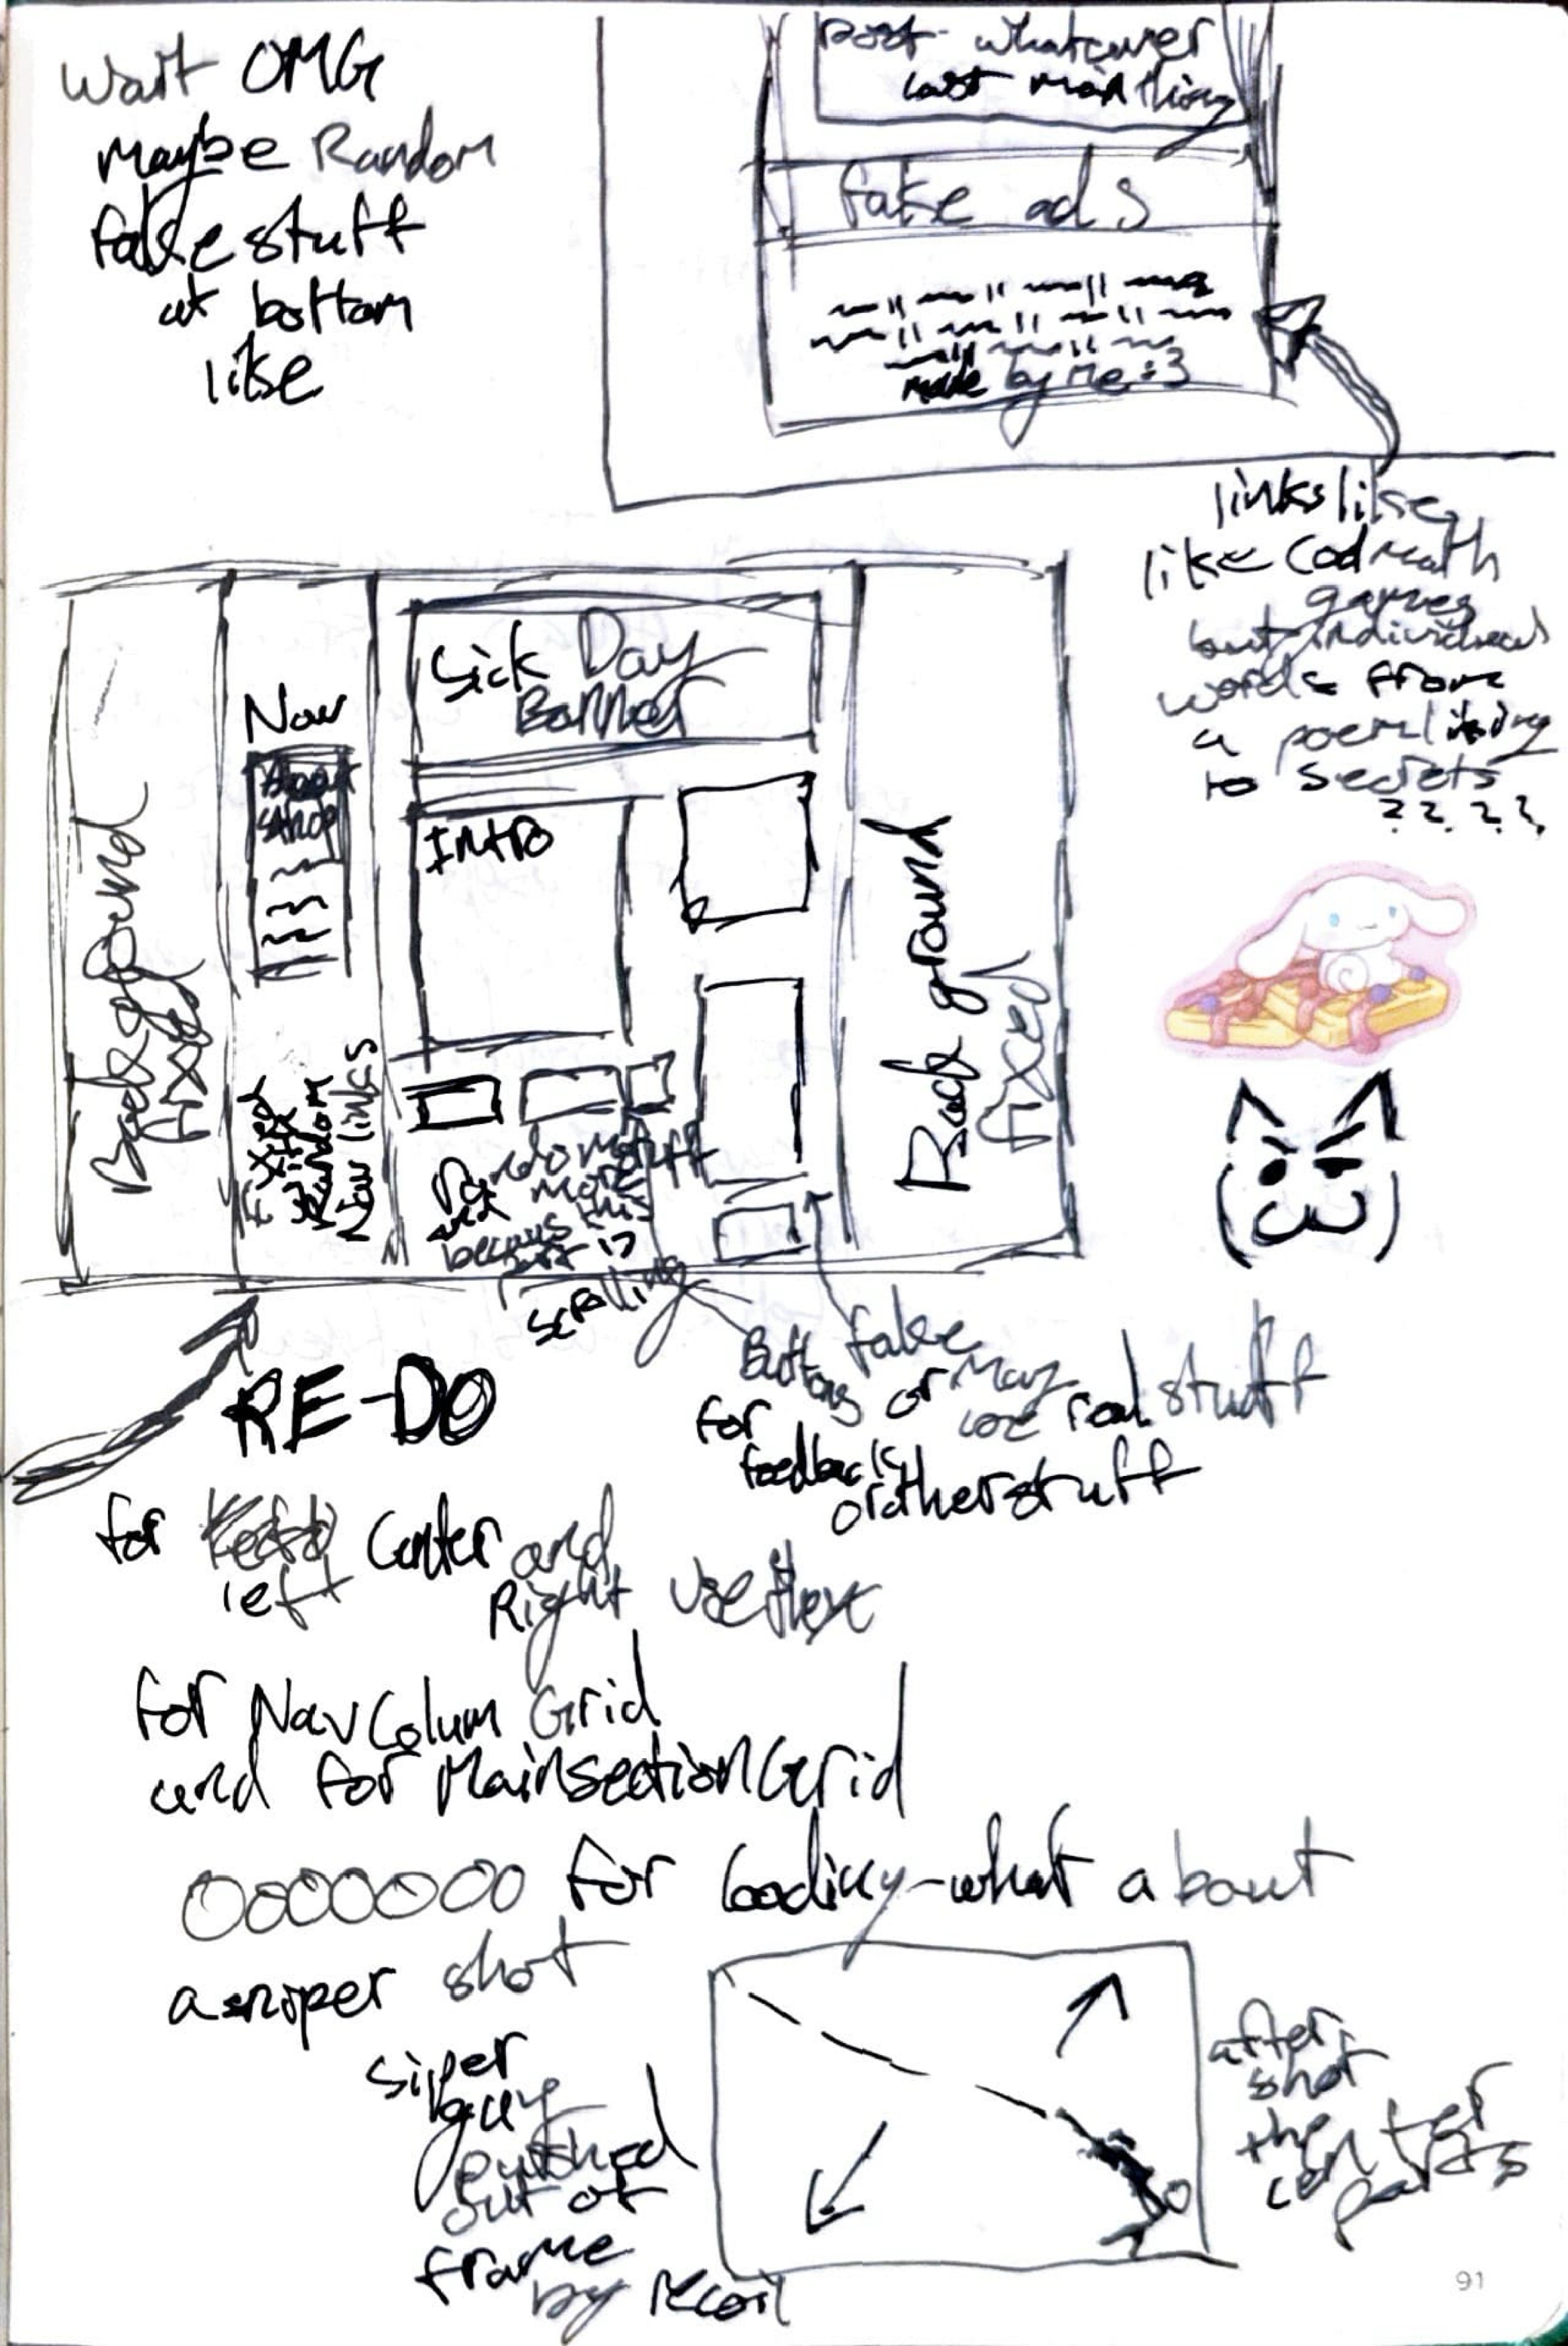 wait OMG
maybe Random
fake stuff
at bottom
like
post whatever
last main thing
fake ads
made by me :3
links like
like Coolmath
games
but individual
words from
a poem linking
to secrets
????
Background
fixed
Nav
About
Shop
fixed
Random
Nav links
Sick Day
Banner
Intro
Random stuff
more
this
because
part is
scrolling
Background
fixed
Buttons
for
feedback
or other stuff
fake
or may
use real stuff
RE-DO
for
left Center and
Right use flex
for Nav Colum Grid
and for Main section Grid
Ooooooo for loading-what about
a sniper shot
siper
guy
pushed
out of
frame
by recoil
after
shot
the
center
parts
91